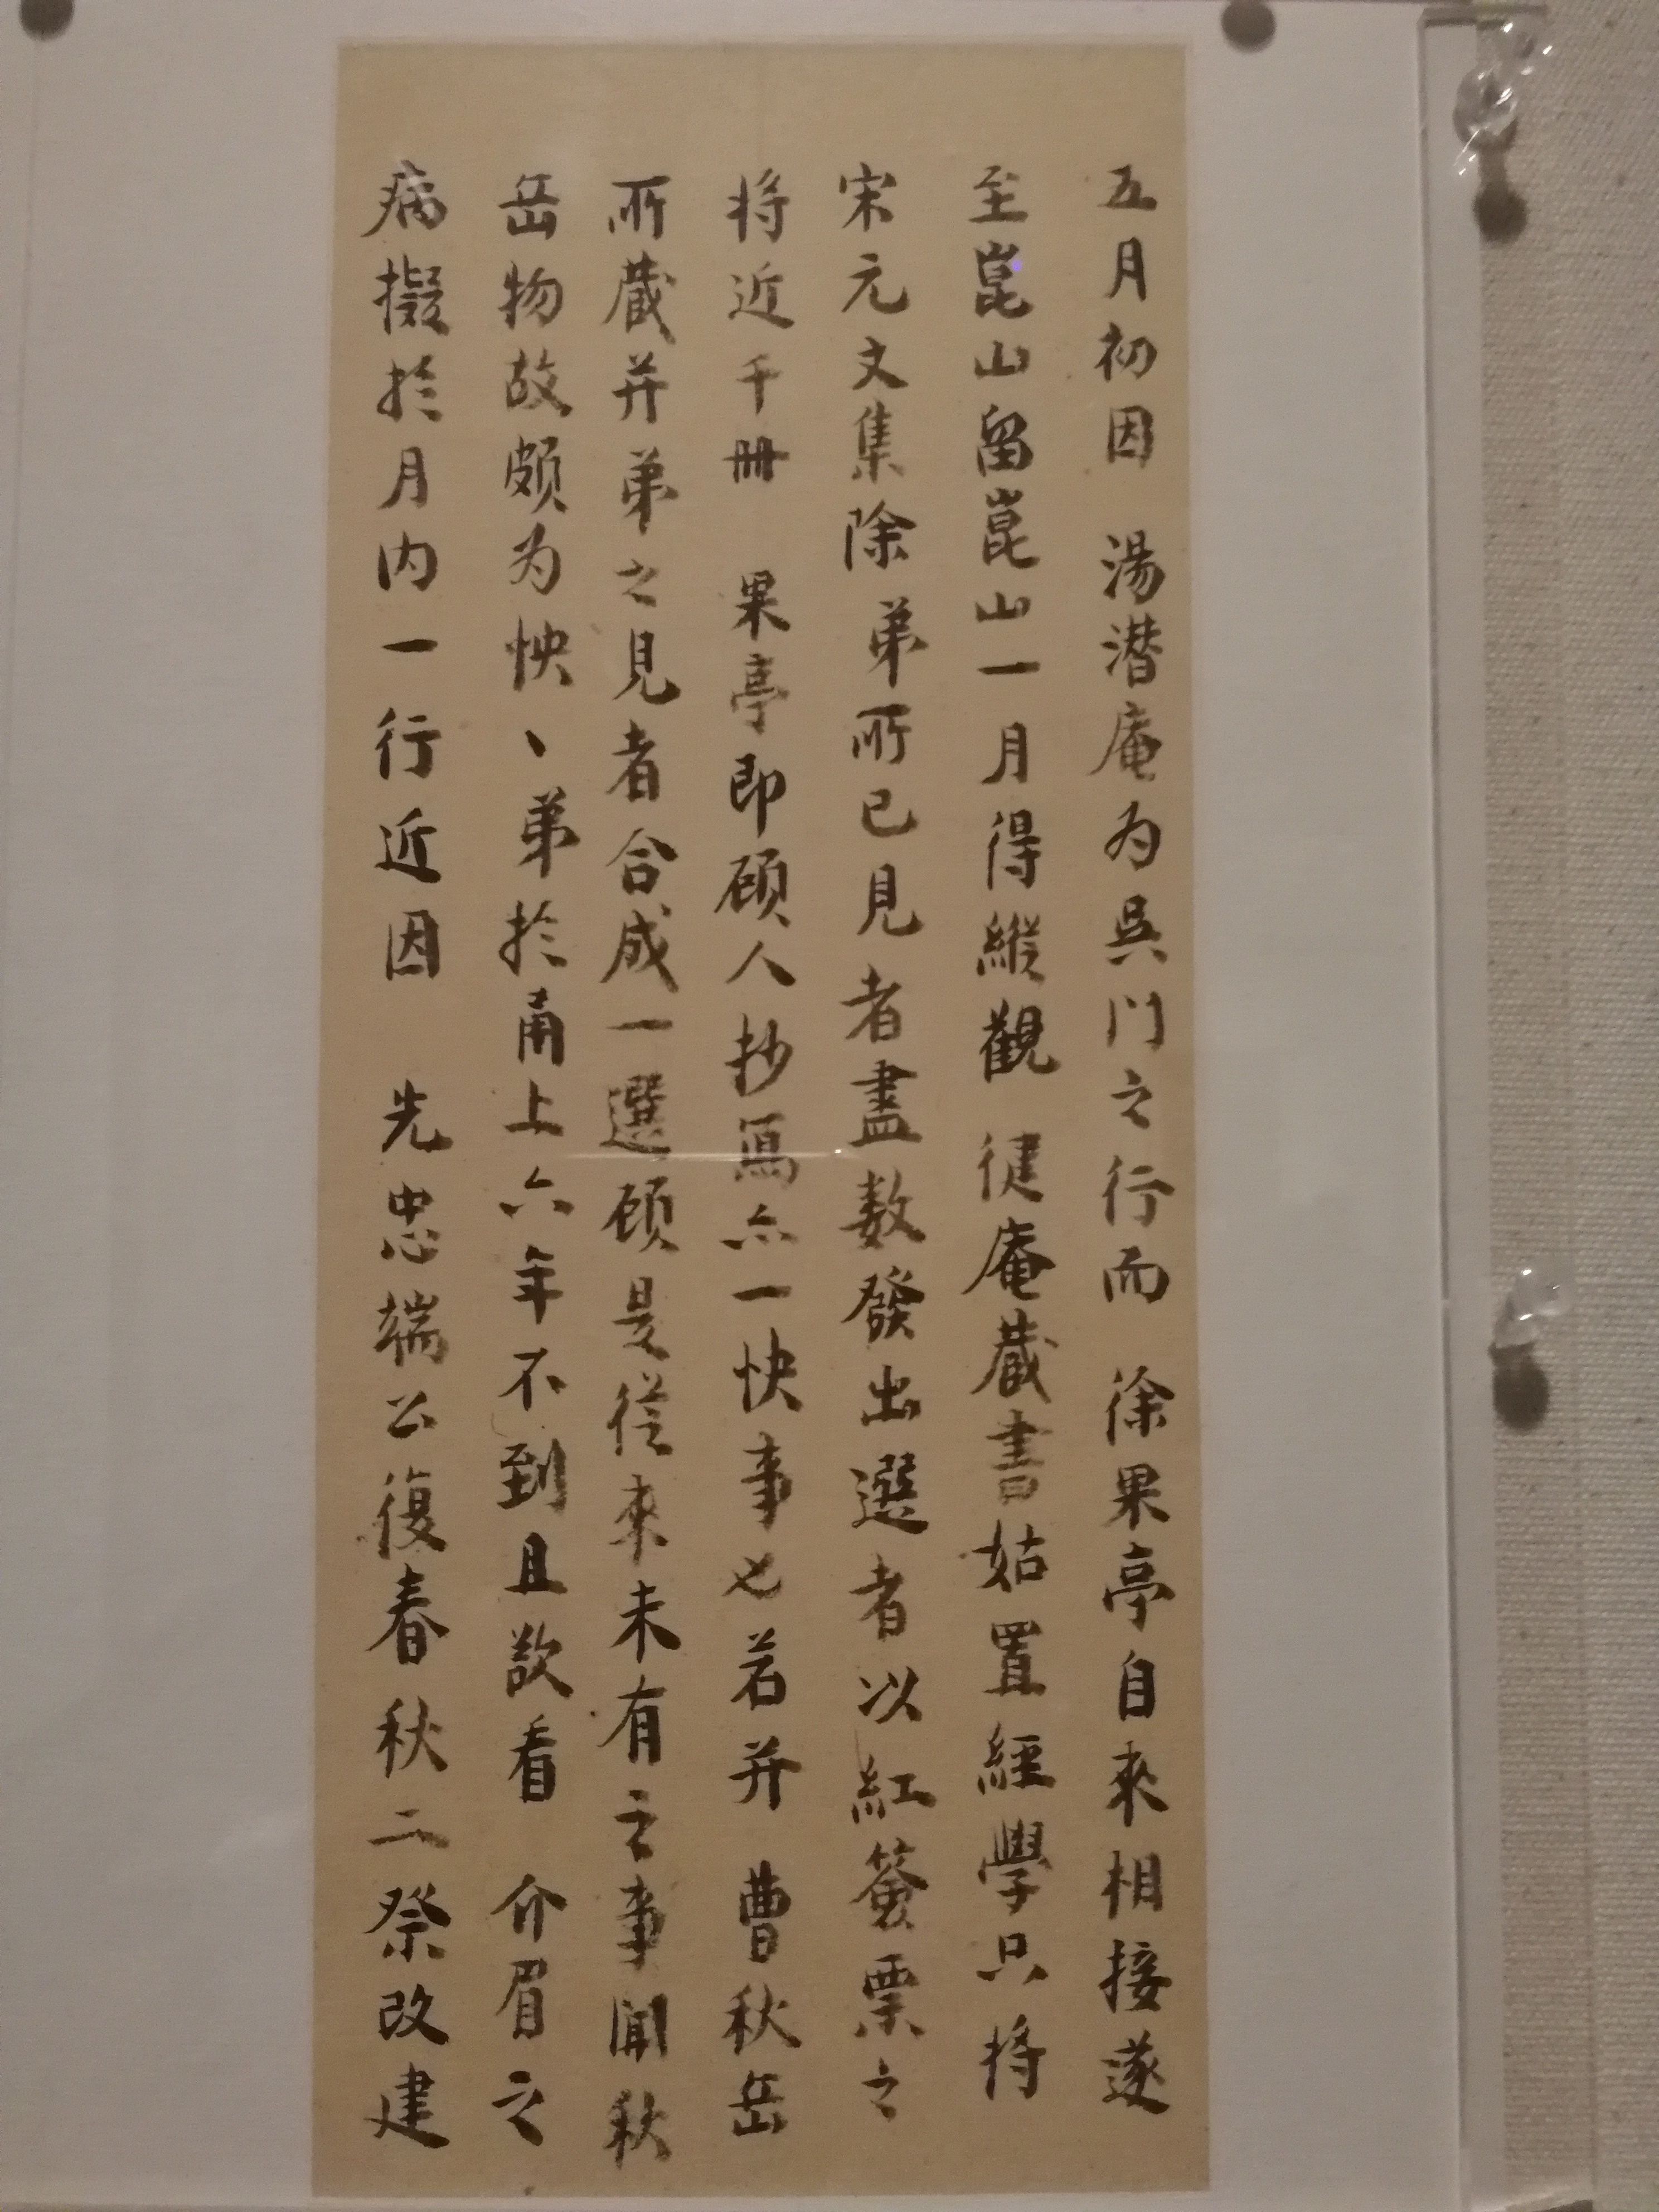 五月初因 湯潛庵为吳门之行而 徐果亭自來相接遂
至崑山留崑山一月得縱觀 健庵藏書姑置經學只将
宋元文集除弟所已見者盡數發出選者以紅簽票之
将近千冊 果亭即顧人抄寫亦一快事也若并 曹秋岳
所藏并弟之見者合成一選顧是從來未有之事聞秋
岳物故頗为怏丶弟於甬上六年不到且欲看 介眉之
病擬於月内一行近因 先忠端公復春秋二祭改建